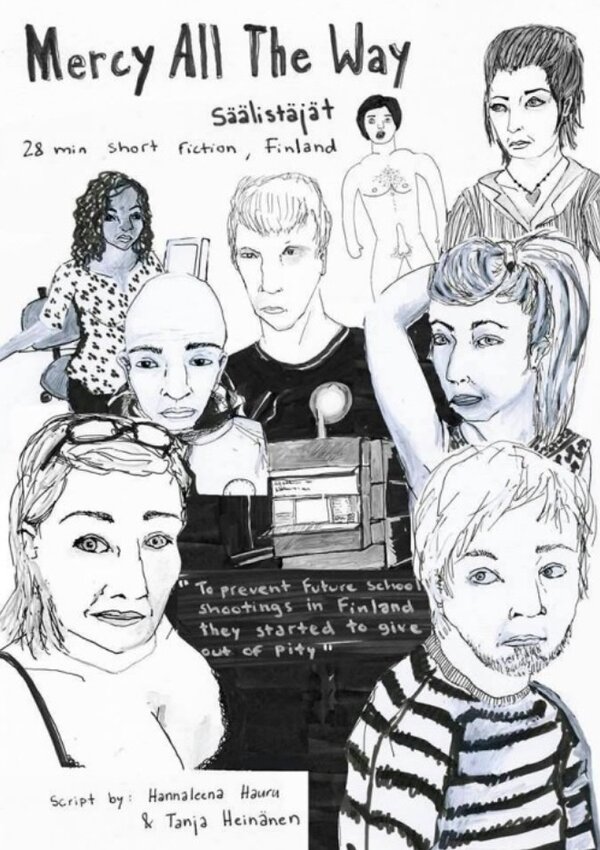 Mercy All The Way
Säälistäjät
28 min short fiction, Finland
"To prevent future school
shootings in Finland
they started to give
out of pity"
Script by: Hannaleena Hauru
& Tanja Heinänen